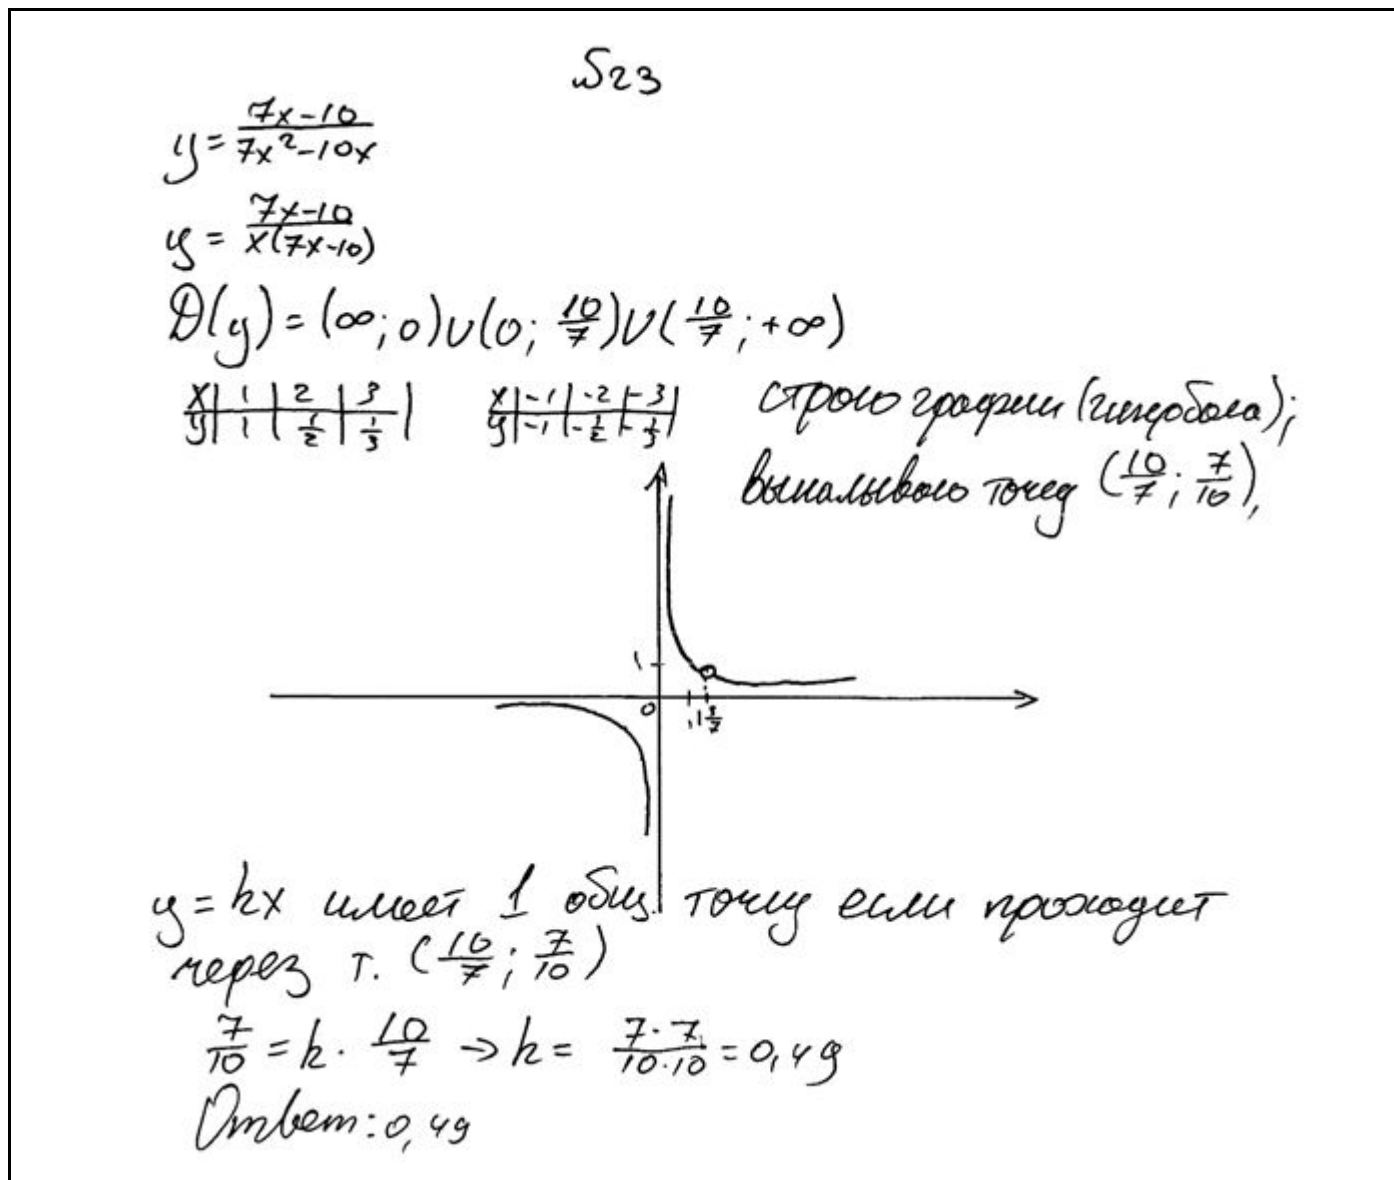 №23
y = (7x-10)/(7x²-10x)
y = (7x-10)/(x(7x-10))
D(y) = (∞; 0)∪(0; 10/7)∪(10/7; +∞)
x | 1 | 2 | 3 |
y | 1 | 1/2 | 1/3 |
x | -1 | -2 | -3 |
y | -1 | -1/2 | -1/3 |
строю график (гипербола);
выкалываю точку (10/7; 7/10),
1
0 1 1 3/7
y = kx имеет 1 общ. точку если проходит
через т. (10/7; 7/10)
7/10 = k · 10/7 → k = (7·7)/(10·10) = 0,49
Ответ: 0,49